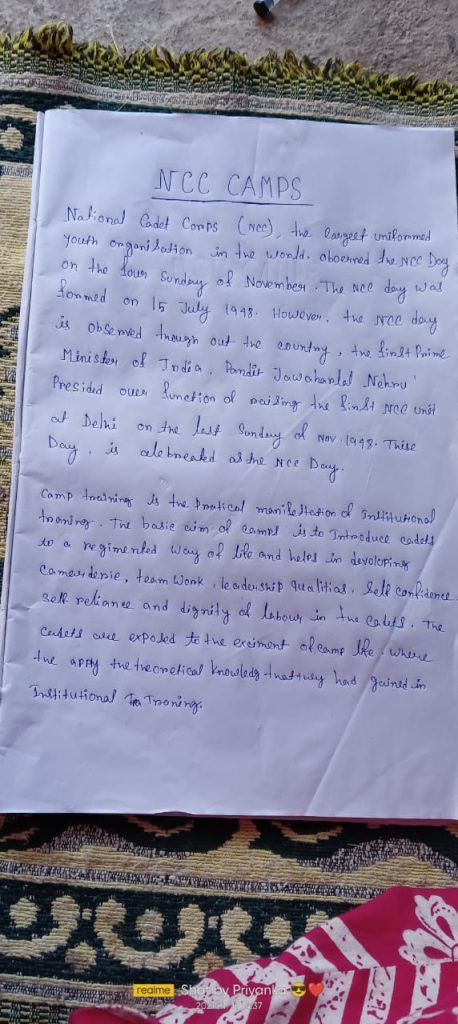 NCC CAMPS
National Cadet Corps (NCC), the largest uniformed
youth organisation in the world. observed the NCC Day
on the four Sunday of November. The NCC day was
formed on 15 July 1948. However, the NCC day
is observed though out the country, the first Prime
Minister of India, Pandit Jawaharlal Nehru'
Presided over function of raising the first NCC unit
at Delhi on the last Sunday of Nov. 1948. These
Day, is celebreated as the NCC Day.
Camp training is the pratical manifestation of Institutional
traning. The basic aim of camps is to Introduce cadets
to a regimented way of life and helps in devoloping
Camerderie, team work, leadership qualitias, Self confidence
self reliance and dignity of labour in the cadets. The
cadets are exposed to the exciment of camp life. where
the apply the theoretical knowledg that they had gained in
Institutional Tra Traning.
realme Shot by Priyanka